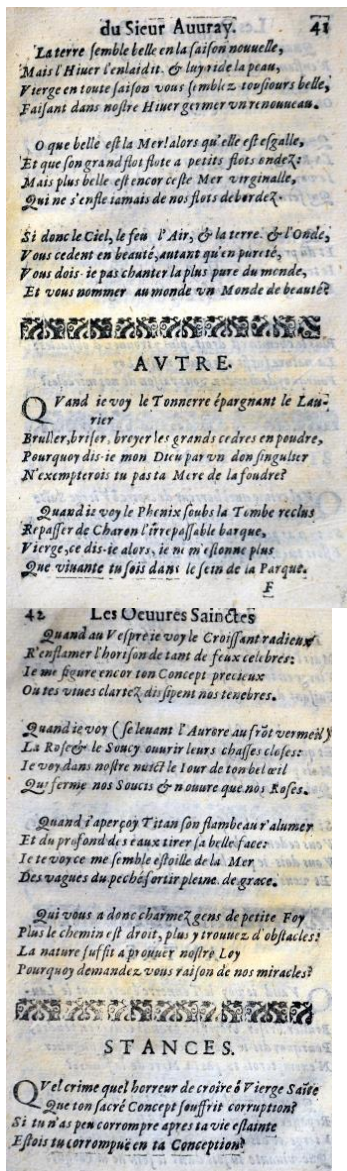 du Sieur Auuray. 41
La terre semble belle en la saison nouuelle,
Mais l'Hiuer l'enlaidit & luy ride la peau,
Vierge en toute saison vous semblez tousiours belle,
Faisant dans nostre Hiuer germer vn renouueau.
O que belle est la Mer! alors qu'elle est esgalle,
Et que son grand flot flote a petits flots ondez:
Mais plus belle est encor ceste Mer virginalle,
Qui ne s'enfle iamais de nos flots debordez.
Si donc le Ciel, le feu l'Air, & la terre & l'Onde,
Vous cedent en beauté, autant qu'en pureté,
Vous dois-ie pas chanter la plus pure du monde,
Et vous nommer au monde vn Monde de beauté?
AVTRE.
QVand ie voy le Tonnerre épargnant le Lau-
rier
Brusler, briser, breyer les grands cedres en poudre,
Pourquoy dis-ie mon Dieu par vn don singulier
N'exempterois tu pas ta Mere de la foudre?
Quand ie voy le Phenix soubs la Tombe reclus
Repasser de Charon l'irrepassable barque,
Vierge, ce dis-ie alors, ie ne m'estonne plus
Que viuante tu sois dans le sein de la Parque.
F
42 Les Oeuures Sainctes
Quand au Vespre ie voy le Croissant radieux
R'enflamer l'horison de tant de feux celebres:
Ie me figure encor ton Concept precieux
Ou tes viues clartez dissipent nos tenebres.
Quand ie voy (se leuant l'Aurore au frõt vermeil)
La Rose & le Soucy ouurir leurs chasses closes:
Ie voy dans nostre nuict le Iour de ton bel œil
Qui ferme nos Soucis & n'ouure que nos Roses.
Quand i'aperçoy Titan son flambeau r'alumer
Et du profond des eaux tirer sa belle face:
Ie te voy ce me semble estoille de la Mer
Des vagues du peché sortir pleine de grace.
Qui vous a donc charmez gens de petite Foy
Plus le chemin est droit, plus y trouuez d'obstacles:
La nature suffit a prouuer nostre Loy
Pourquoy demandez vous raison de nos miracles?
STANCES.
QVel crime quel horreur de croire ô Vierge Saĩte
Que ton sacré Concept souffrit corruption?
Si tu n'as peu corrompre apres ta vie estainte
Estois tu corrompuë en ta Conception?